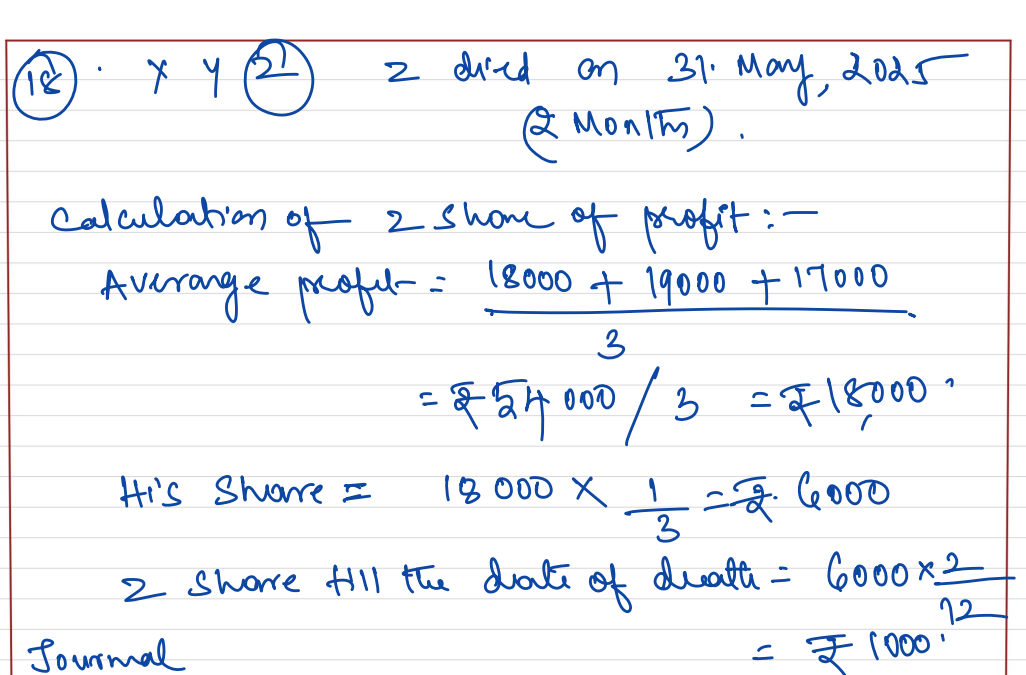 18. X Y Z Z died on 31. May, 2025
(2 Months).
Calculation of Z Share of profit :-
Average profit = 18000 + 19000 + 17000
3
= ₹54000 / 3 = ₹18,000
His Share = 18000 × 1/3 = ₹. 6000
Z Share till the date of death = 6000 × 2/12
Journal = ₹ 1000